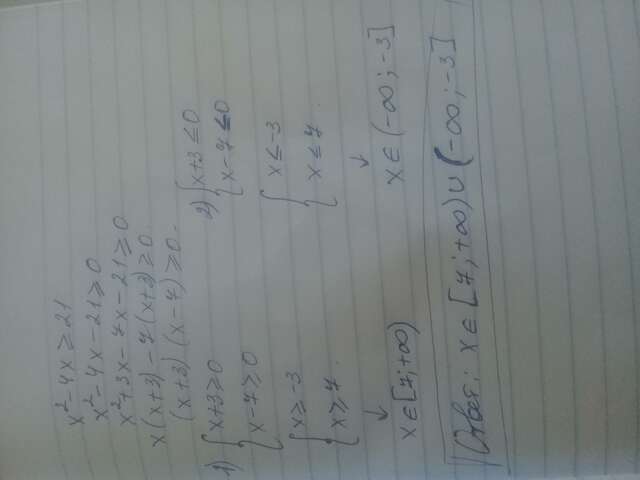 x² - 4x ≥ 21
x² - 4x - 21 ≥ 0
x² + 3x - 7x - 21 ≥ 0
x(x+3) - 7(x+3) ≥ 0.
(x+3)(x-7) ≥ 0.
1) { x+3 ≥ 0
x-7 ≥ 0
{ x ≥ -3
x ≥ 7.
↓
x ∈ [7; +∞)
2) { x+3 ≤ 0
x-7 ≤ 0
{ x ≤ -3
x ≤ 7.
↓
x ∈ (-∞; -3]
Ответ: x ∈ [7; +∞) ∪ (-∞; -3]